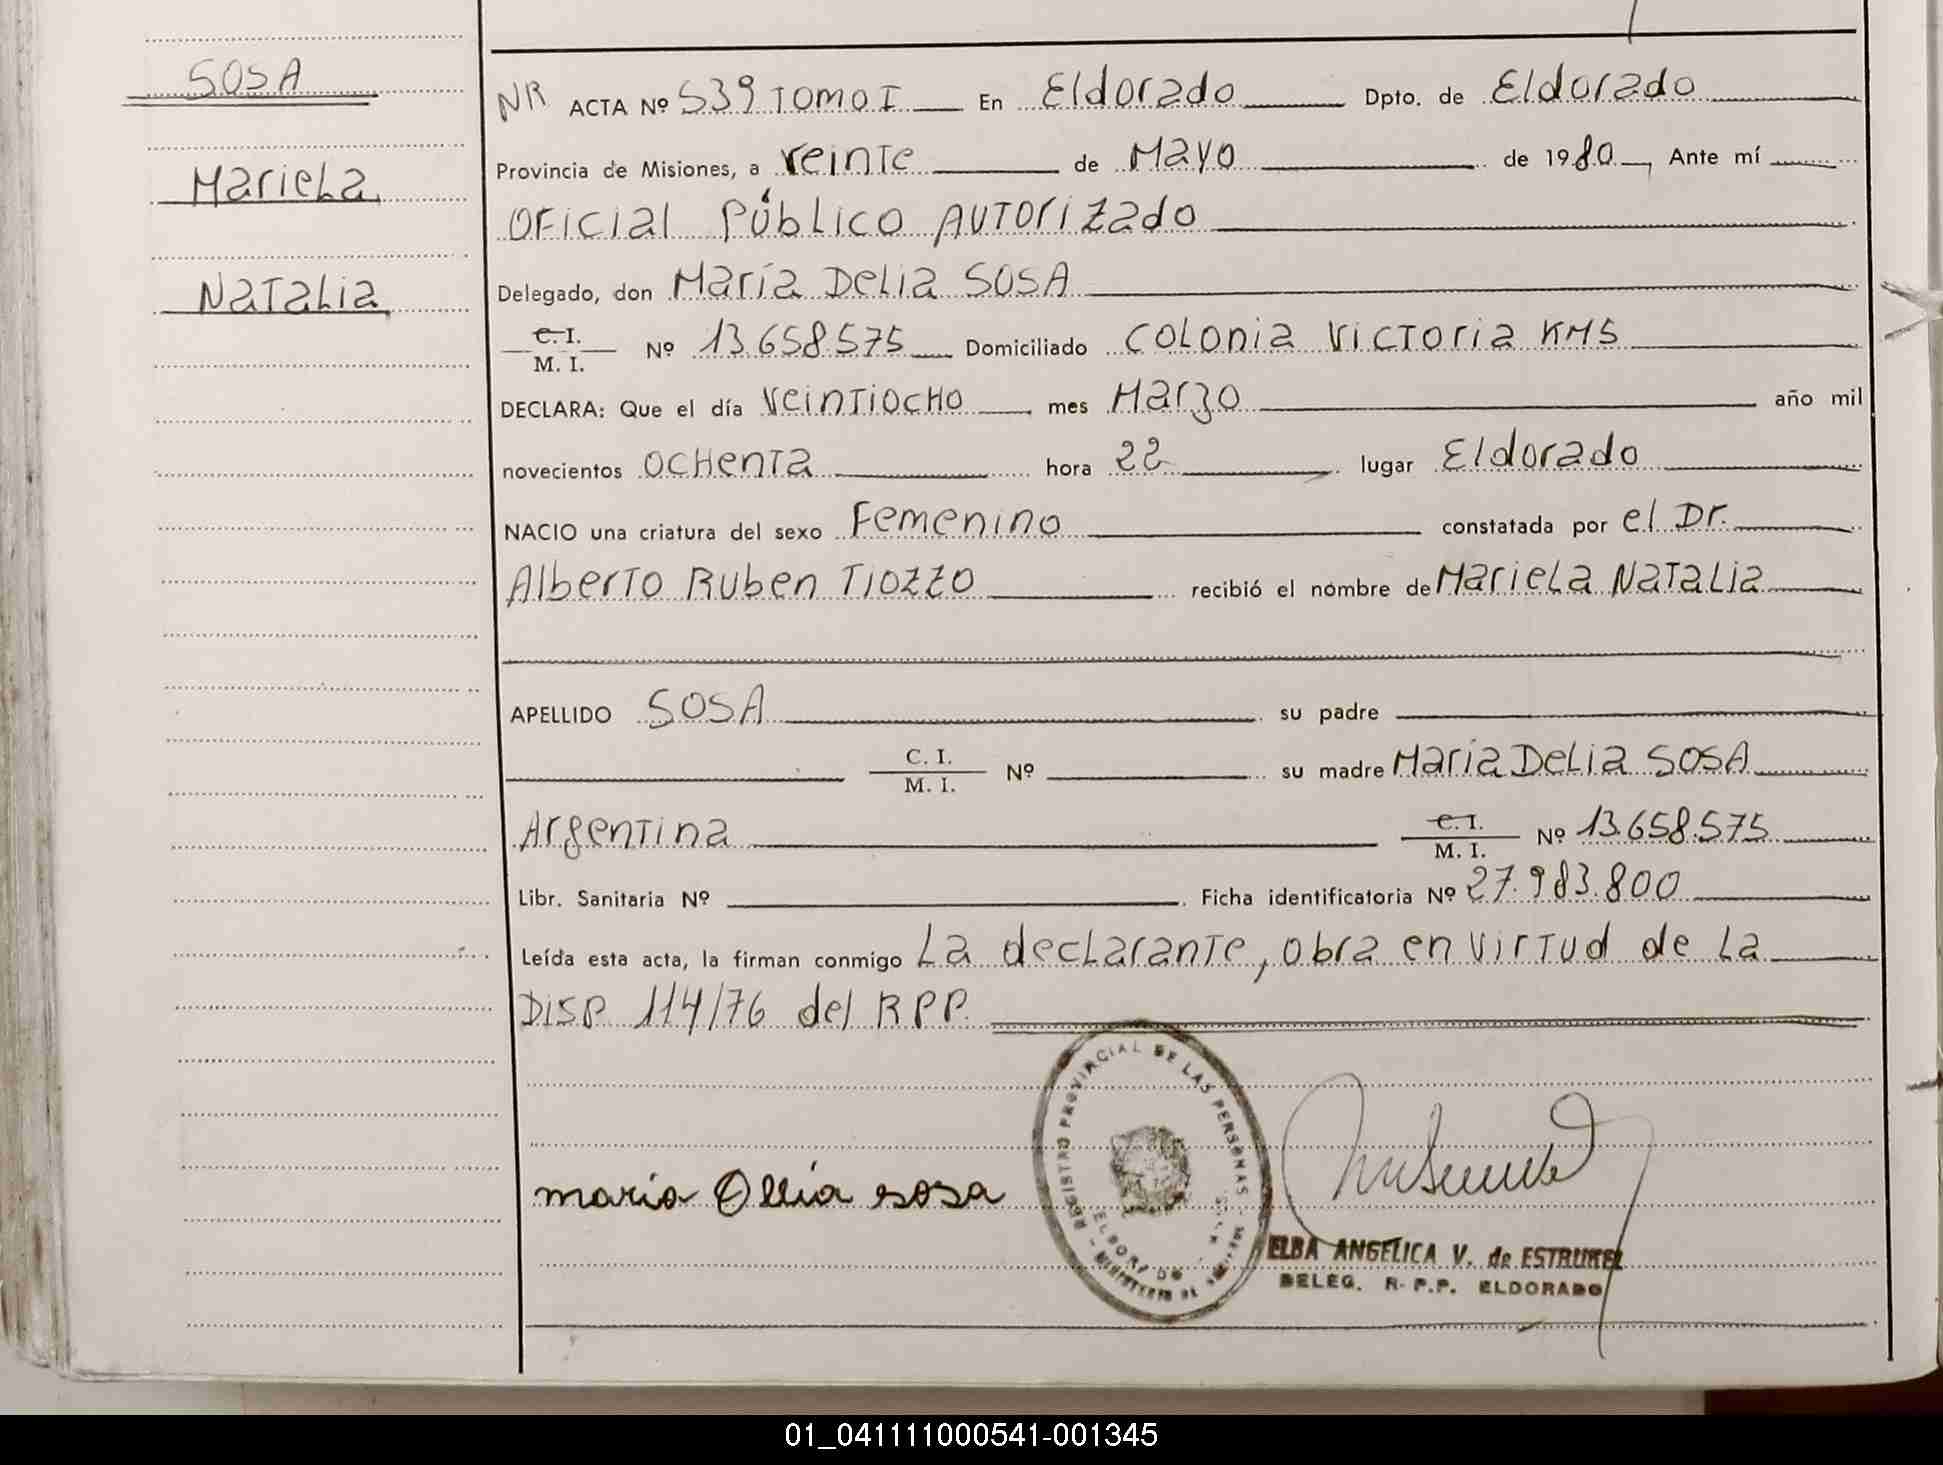 SOSA
Mariela
Natalia
NR ACTA Nº 539 TOMO I En Eldorado Dpto. de Eldorado
Provincia de Misiones, a veinte de Mayo de 1980, Ante mí
Oficial Público Autorizado
Delegado, don María Delia SOSA
C. I. / M. I. Nº 13.658.575 Domiciliado Colonia Victoria KM5
DECLARA: Que el día veintiocho mes Marzo año mil
novecientos ochenta hora 22 lugar Eldorado
NACIO una criatura del sexo Femenino constatada por el Dr.
Alberto Ruben Tiozzo recibió el nombre de Mariela Natalia
APELLIDO SOSA su padre
C. I. / M. I. Nº su madre María Delia SOSA
Argentina C. I. / M. I. Nº 13.658.575
Libr. Sanitaria Nº Ficha identificatoria Nº 27.983.800
Leída esta acta, la firman conmigo La declarante, obra en virtud de La
DISP. 114/76 del R P P.
REGISTRO PROVINCIAL DE LAS PERSONAS
ELDORADO
maria Delia sosa
ELBA ANGELICA V. de ESTRUKEL
DELEG. R. P.P. ELDORADO
01_041111000541-001345